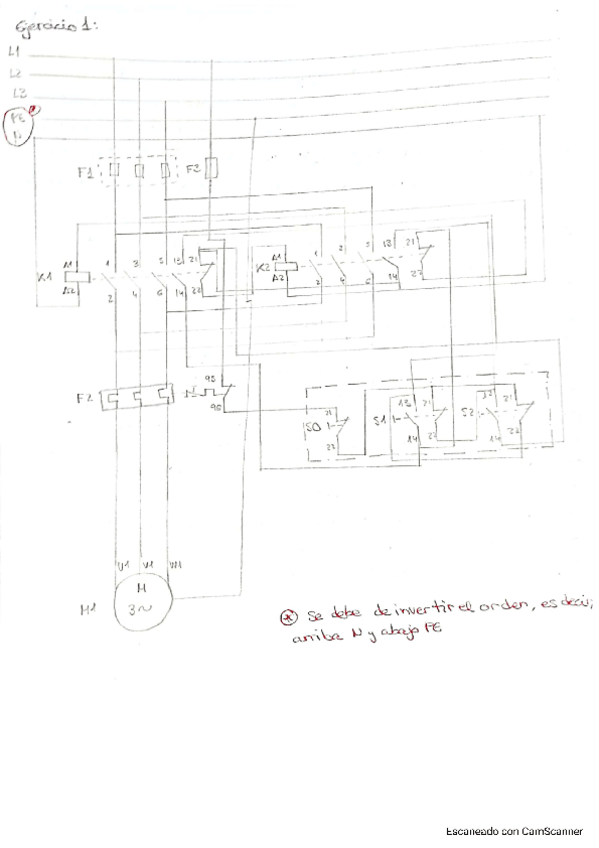 Ejercicio 1:
L1
L2
L3
PE *
N
F1 F3
K1 A1 A2 1 2 3 4 5 6 13 14 21 22
K2 A1 A2 1 2 3 4 5 6 13 14 21 22
F2 95 96
S0 21 22
S1 13 14 21 22
S2 13 14 21 22
U1 V1 W1
M1 M 3~
* Se debe de invertir el orden, es decir,
arriba N y abajo PE
Escaneado con CamScanner